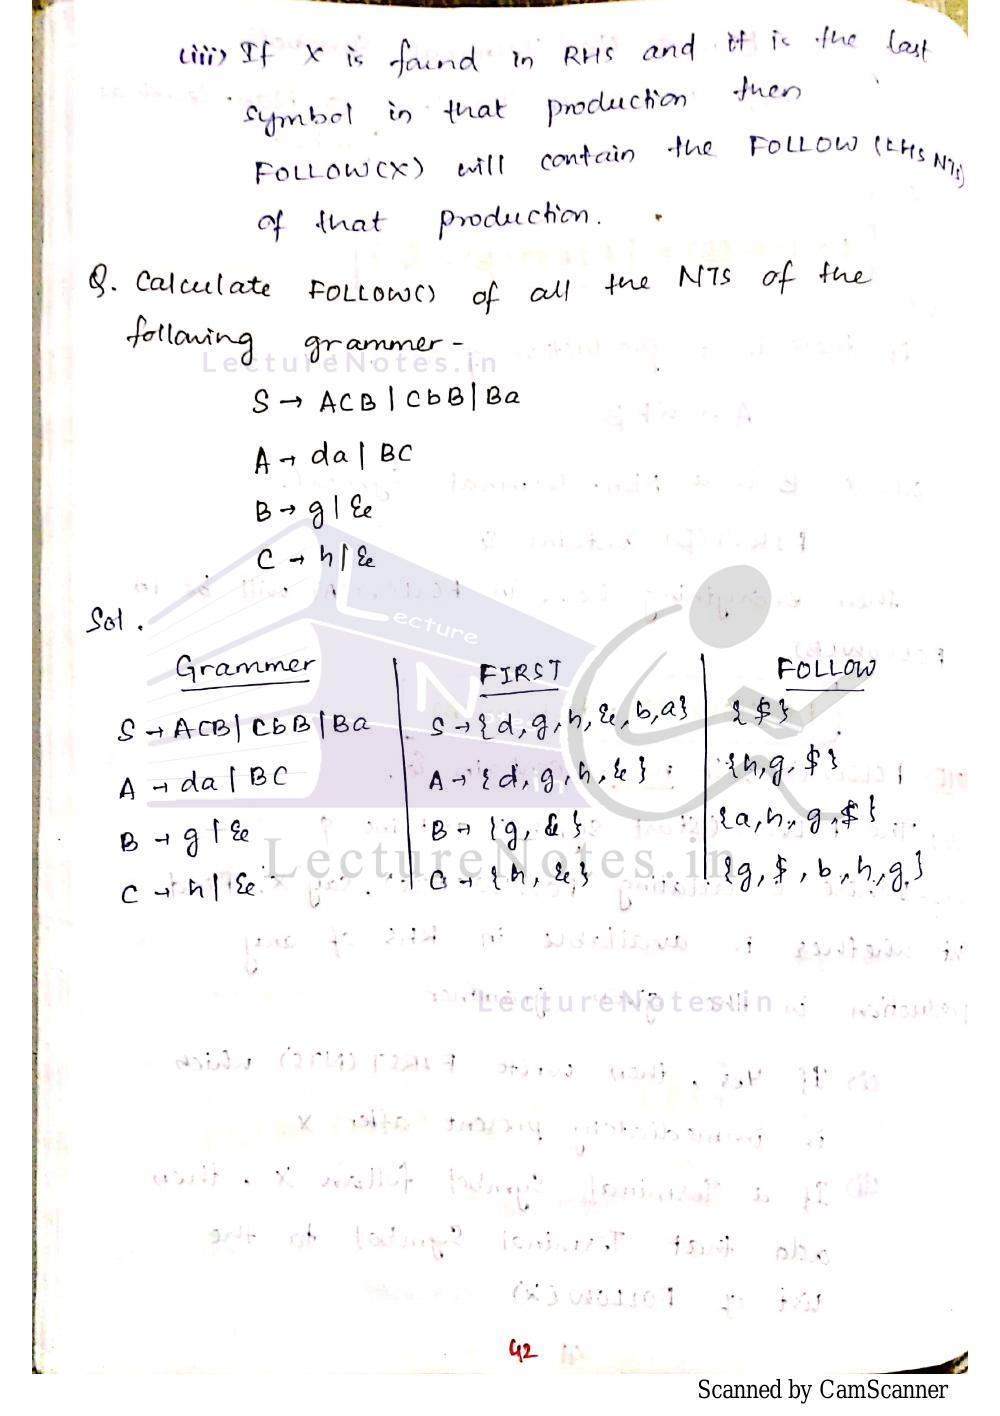 (iii) If X is found in RHS and it is the last
symbol in that production then
FOLLOW(X) will contain the FOLLOW (LHS NTs)
of that production.
Q. Calculate FOLLOW() of all the NTS of the
following grammer -
LectureNotes.in
S → ACB | CbB | Ba
A → da | BC
B → g | Ɛe
C → h | Ɛe
Sol.
Lecture
Grammer FIRST FOLLOW
S → ACB | CbB | Ba S → {d, g, h, Ɛe, b, a} {$}
A → da | BC A → {d, g, h, Ɛe} {h, g, $}
B → g | Ɛe B → {g, Ɛe} {a, h, g, $}
LectureNotes.in
C → h | Ɛe C → {h, Ɛe} {g, $, b, h, g}
LectureNotes.in
42
Scanned by CamScanner